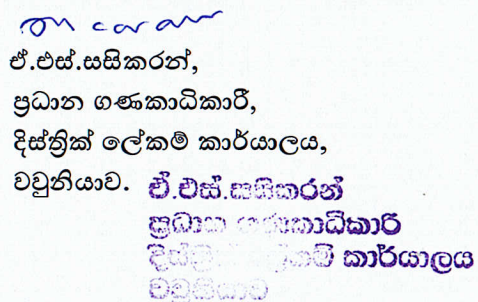 ඒ.එස්.සසිකරන්,
ප්‍රධාන ගණකාධිකාරී,
දිස්ත්‍රික් ලේකම් කාර්යාලය,
වවුනියාව.
ඒ.එස්.සසිකරන්
ප්‍රධාන ගණකාධිකාරි
දිස්ත්‍රික් ලේකම් කාර්යාලය
වවුනියාව